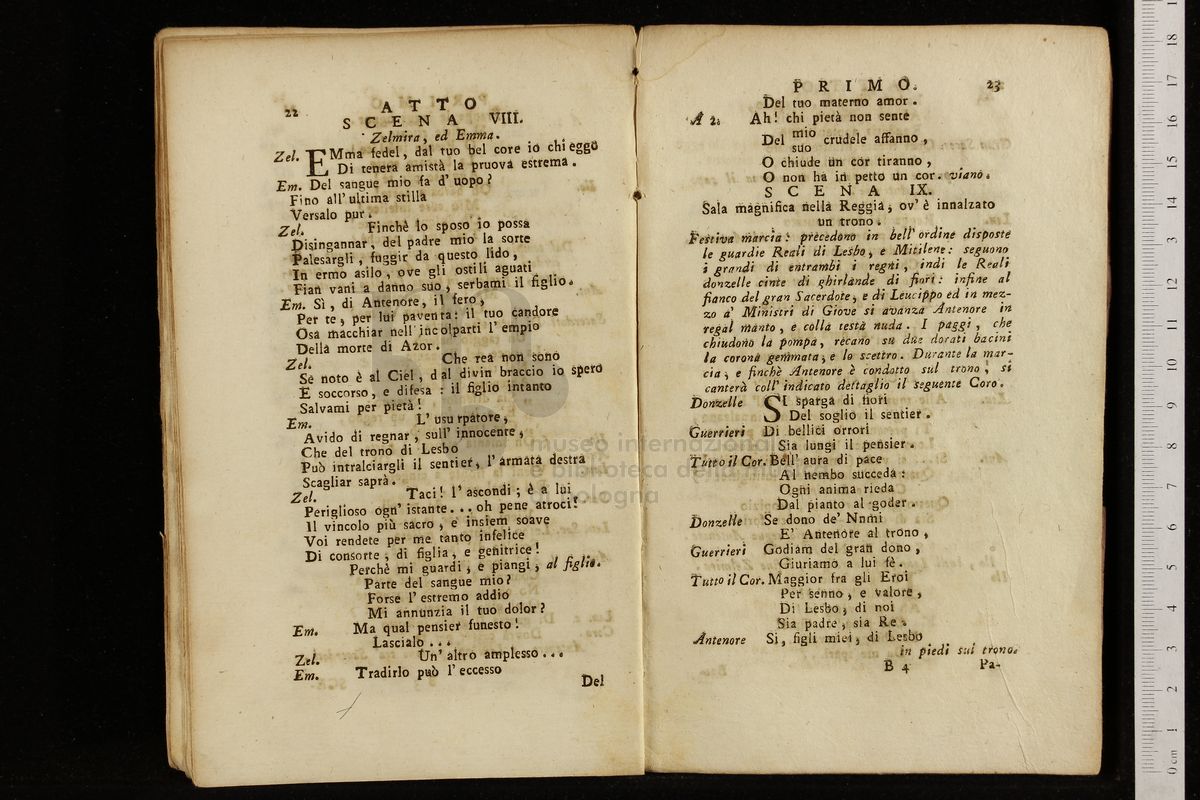 22
A T T O
S C E N A VIII.
Zelmira, ed Emma.
Zel. EMma fedel, dal tuo bel core io chieggo
Di tenera amistà la pruova estrema.
Em. Del sangue mio fa d'uopo?
Fino all'ultima stilla
Versalo pur.
Zel. Finchè lo sposo io possa
Disingannar, del padre mio la sorte
Palesargli, fuggir da questo lido,
In ermo asilo, ove gli ostili aguati
Fian vani a danno suo, serbami il figlio.
Em. Sì, di Antenore, il fero,
Per te, per lui paventa: il tuo candore
Osa macchiar nell'incolparti l'empio
Della morte di Azor.
Zel. Che rea non sono
Se noto è al Ciel, dal divin braccio io spero
E soccorso, e difesa: il figlio intanto
Salvami per pietà!
Em. L'usurpatore,
Avido di regnar, sull'innocente,
Che del trono di Lesbo
Può intralciargli il sentier, l'armata destra
Scagliar saprà.
Zel. Taci! l'ascondi; è a lui
Periglioso ogn'istante... oh pene atroci!
Il vincolo più sacro, e insiem soave
Voi rendete per me tanto infelice
Di consorte, di figlia, e genitrice!
Perchè mi guardi, e piangi, al figlio.
Parte del sangue mio?
Forse l'estremo addio
Mi annunzia il tuo dolor?
Em. Ma qual pensier funesto!
Lascialo...
Zel. Un'altro amplesso...
Em. Tradirlo può l'eccesso
Del
P R I M O. 23
Del tuo materno amor.
A 2. Ah! chi pietà non sente
Del mio crudele affanno,
suo
O chiude un cor tiranno,
O non ha in petto un cor. viano.
S C E N A IX.
Sala magnifica nella Reggia, ov'è innalzato
un trono.
Festiva marcia: precedono in bell'ordine disposte
le guardie Reali di Lesbo, e Mitilene: seguono
i grandi di entrambi i regni, indi le Reali
donzelle cinte di ghirlande di fiori: infine al
fianco del gran Sacerdote, e di Leucippo ed in mez-
zo a' Ministri di Giove si avanza Antenore in
regal manto, e colla testa nuda. I paggi, che
chiudono la pompa, recano su due dorati bacini
la corona gemmata, e lo scettro. Durante la mar-
cia, e finchè Antenore è condotto sul trono, si
canterà coll'indicato dettaglio il seguente Coro.
Donzelle SI sparga di fiori
Del soglio il sentier.
Guerrieri Di bellici orrori
Sia lungi il pensier.
Tutto il Cor. Bell'aura di pace
Al nembo succeda:
Ogni anima rieda
Dal pianto al goder.
Donzelle Se dono de' Nnmi
E' Antenore al trono,
Guerrieri Godiam del gran dono,
Giuriamo a lui fè.
Tutto il Cor. Maggior fra gli Eroi
Per senno, e valore,
Di Lesbo, di noi
Sia padre, sia Re.
Antenore Si, figli miei, di Lesbo
in piedi sul trono.
B 4 Pa-
museo internazionale
e biblioteca della musica
bologna
0 cm 1 2 3 4 5 6 7 8 9 10 11 12 13 14 15 16 17 18